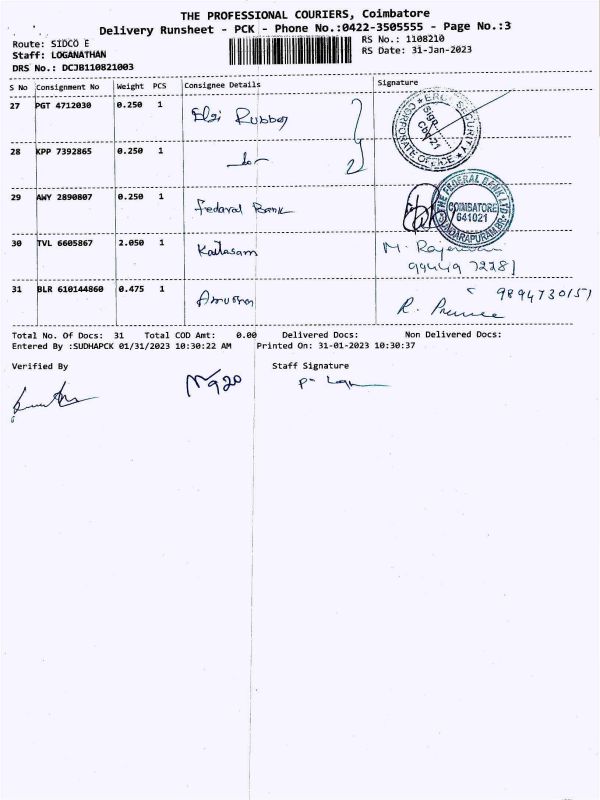 THE PROFESSIONAL COURIERS, Coimbatore
Delivery Runsheet - PCK - Phone No.:0422-3505555 - Page No.:3
Route: SIDCO E
RS No.: 1108210
Staff: LOGANATHAN
RS Date: 31-Jan-2023
DRS No.: DCJB110821003
S No Consignment No Weight PCS Consignee Details Signature
27 PGT 4712030 0.250 1 Elgi Rubber
SECURITY CORPORATE OFFICE
28 KPP 7392865 0.250 1
29 AWY 2890807 0.250 1 Fedaral Bank
THE FEDERAL BANK LTD
COIMBATORE
641021
30 TVL 6605867 2.050 1 Kailasam M.
99449 72281
31 BLR 610144860 0.475 1 9894730151
R.
Total No. Of Docs: 31 Total COD Amt: 0.00 Delivered Docs: Non Delivered Docs:
Entered By :SUDHAPCK 01/31/2023 10:30:22 AM Printed On: 31-01-2023 10:30:37
Verified By Staff Signature